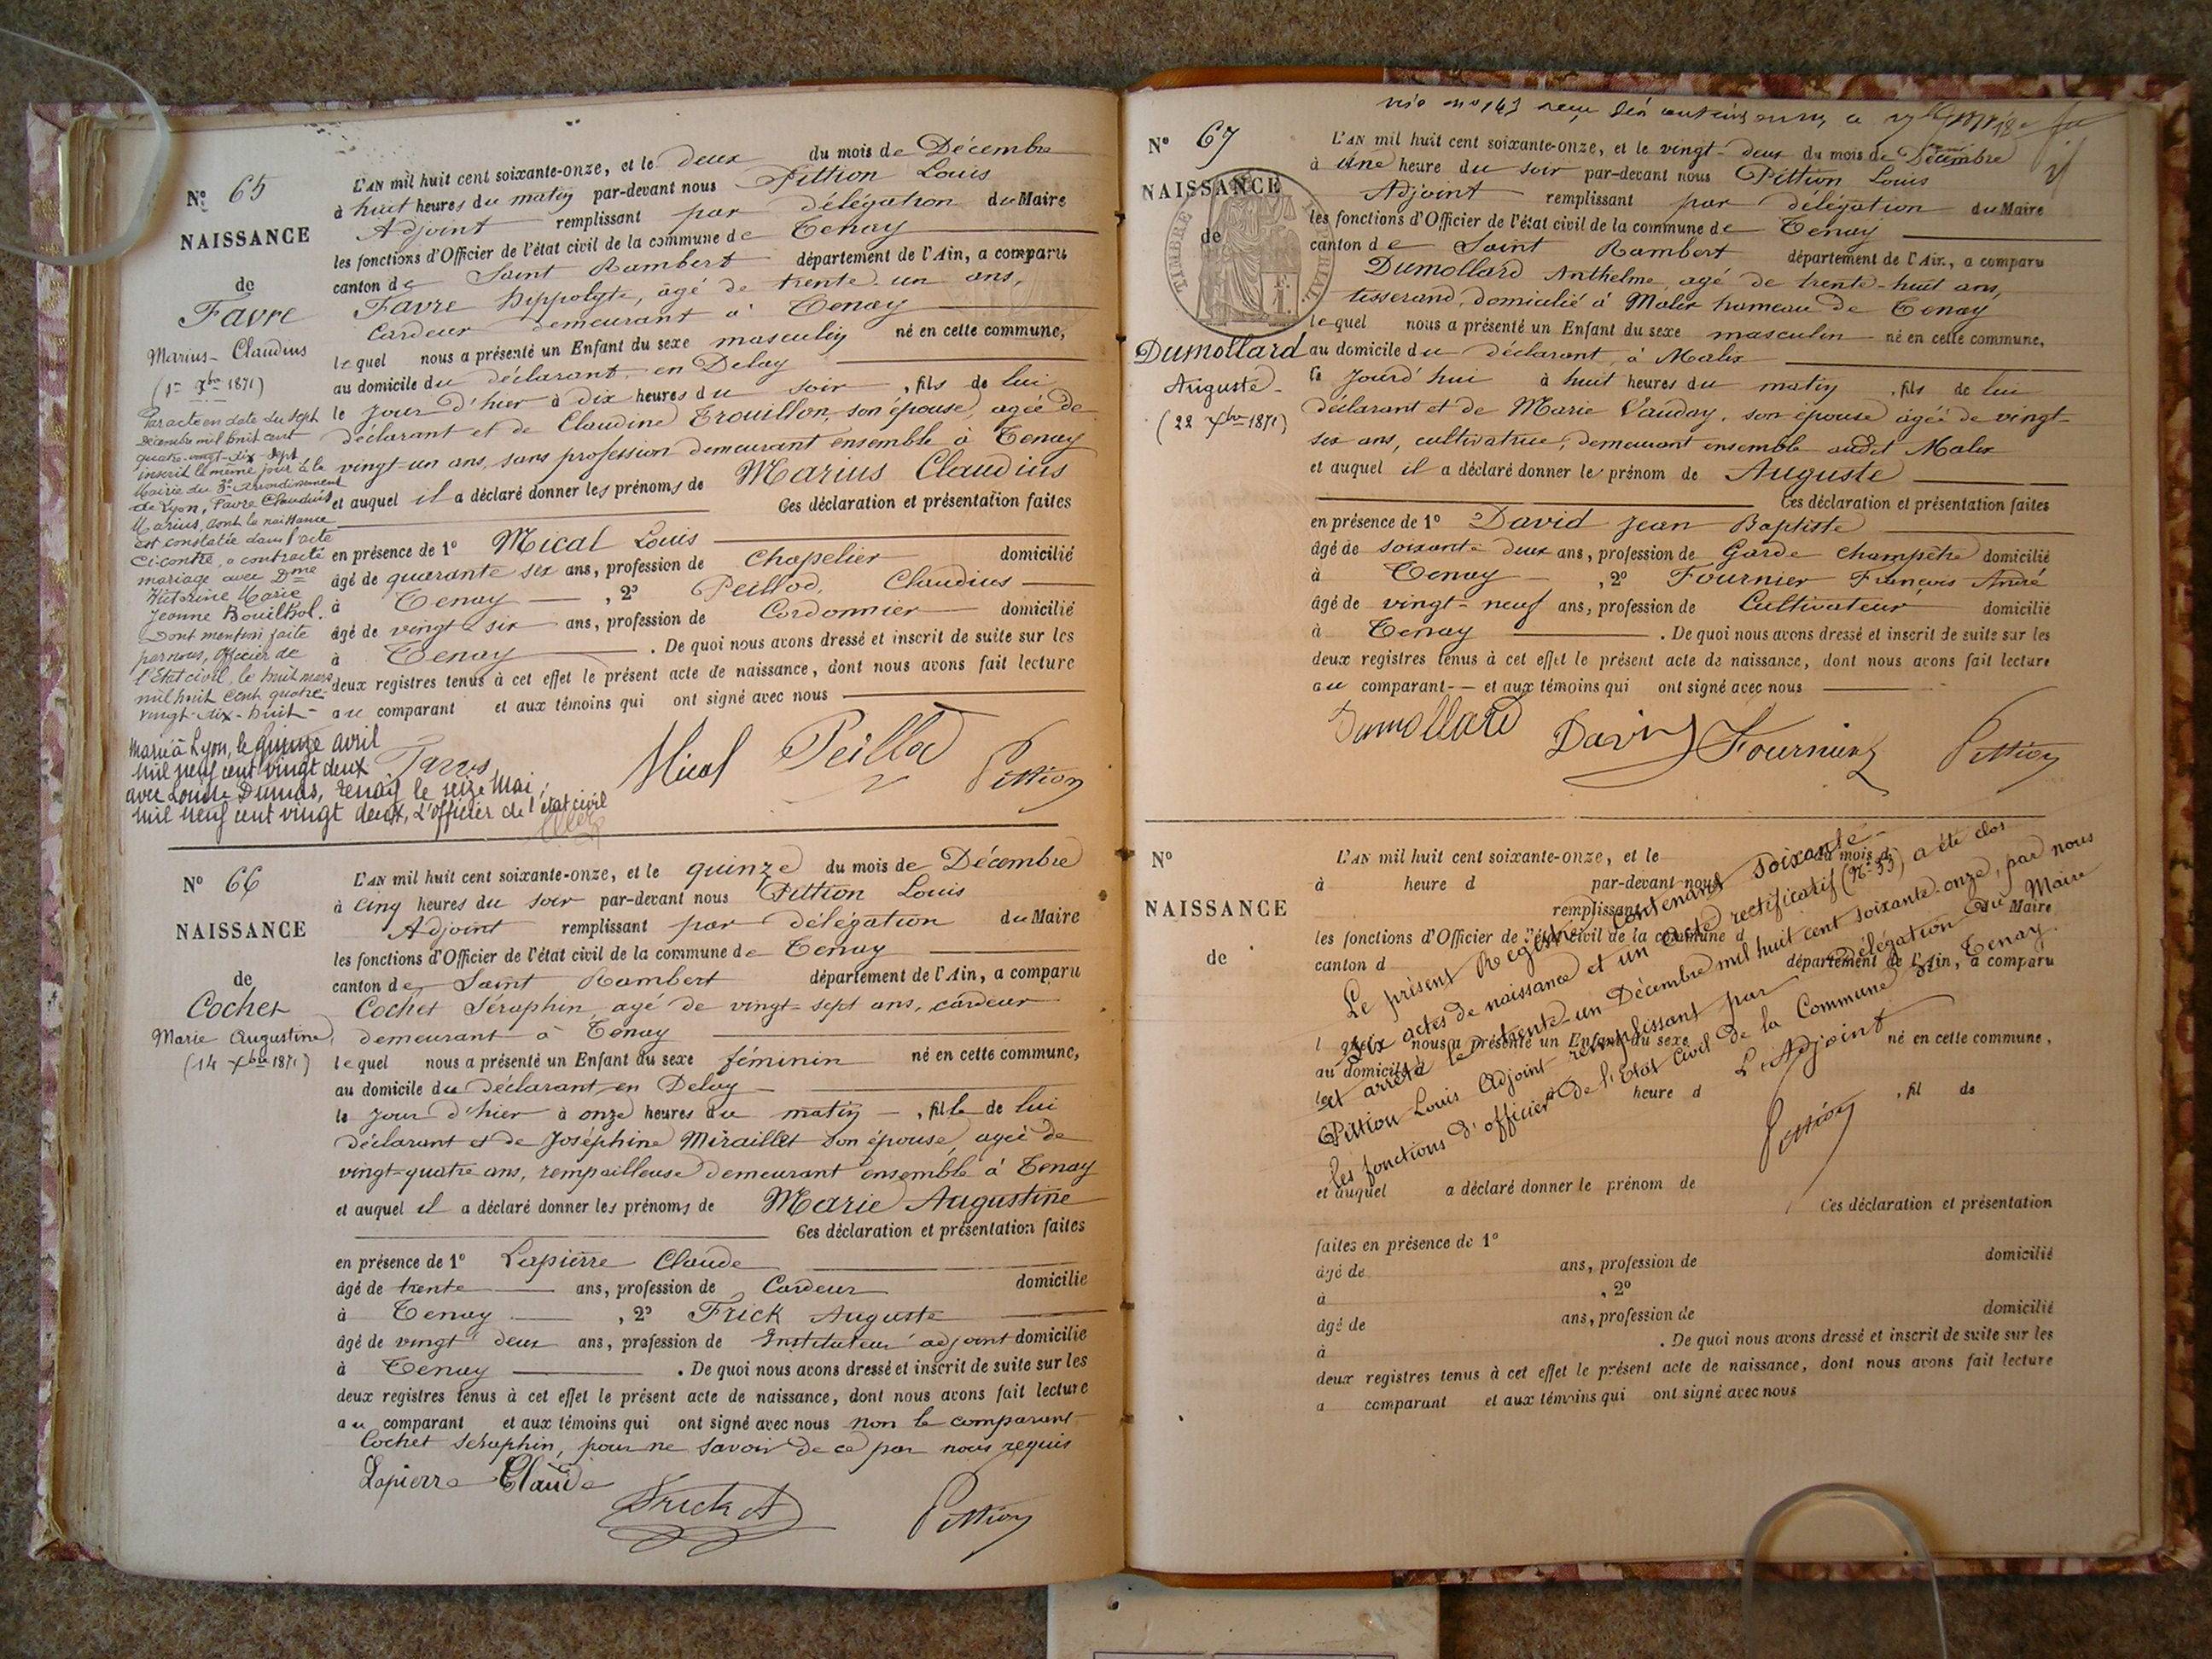 Nº 65
NAISSANCE
de
Favre
Marius-Claudius
(1er Xbre 1871)
Par acte en date du sept
décembre mil huit cent
quatre-vingt-dix-sept
inscrit le même jour à la
Mairie du 3e Arrondissement
de Lyon, Favre Claudius
Marius, dont la naissance
est constatée dans l'acte
ci-contre, a contracté
mariage avec Dme
Victorine Marie
Jeanne Bouilhol.
Dont mention faite
par nous, officier de
l'état civil, le huit mars
mil huit cent quatre-
vingt-dix-huit-
Marié à Lyon, le quinze avril
mil neuf cent vingt deux
avec Louise Dumas, Tenay le seize Mai,
mil neuf cent vingt deux, L'officier de l'état civil
L'AN mil huit cent soixante-onze, et le deux du mois de Décembre
à huit heures du matin par-devant nous Pittion Louis
Adjoint remplissant par délégation du Maire
les fonctions d'Officier de l'état civil de la commune de Tenay
canton de Saint Rambert département de l'Ain, a comparu
Favre Hippolyte, âgé de trente-un ans,
Cardeur demeurant à Tenay
lequel nous a présenté un Enfant du sexe masculin né en cette commune,
au domicile du déclarant en Delay
le jour d'hier à dix heures du soir, fils de lui
déclarant et de Claudine Trouillon, son épouse, agée de
vingt-un ans, sans profession demeurant ensemble à Tenay
et auquel il a déclaré donner les prénoms de Marius Claudius
Ces déclaration et présentation faites
en présence de 1º Mical Louis
âgé de quarante six ans, profession de Chapelier domicilié
à Tenay, 2º Peillod, Claudius
âgé de vingt-six ans, profession de Cordonnier domicilié
à Tenay. De quoi nous avons dressé et inscrit de suite sur les
deux registres tenus à cet effet le présent acte de naissance, dont nous avons fait lecture
au comparant et aux témoins qui ont signé avec nous
Favre Mical Peillod Pittion
Nº 66
NAISSANCE
de
Cochet
Marie Augustine,
(14 Xbre 1871)
L'AN mil huit cent soixante-onze, et le quinze du mois de Décembre
à cinq heures du soir par-devant nous Pittion Louis
Adjoint remplissant par délégation du Maire
les fonctions d'Officier de l'état civil de la commune de Tenay
canton de Saint Rambert département de l'Ain, a comparu
Cochet Séraphin, agé de vingt-sept ans, cardeur
demeurant à Tenay
lequel nous a présenté un Enfant du sexe féminin né en cette commune,
au domicile du déclarant en Delay
le jour d'hier à onze heures du matin, fille de lui
déclarant et de Joséphine Miraillet son épouse, agée de
vingt-quatre ans, rempailleuse demeurant ensemble à Tenay
et auquel il a déclaré donner les prénoms de Marie Augustine
Ces déclaration et présentation faites
en présence de 1º Lapierre Claude
âgé de trente ans, profession de Cardeur domicilié
à Tenay, 2º Frick Auguste
âgé de vingt deux ans, profession de Instituteur adjoint domicilié
à Tenay. De quoi nous avons dressé et inscrit de suite sur les
deux registres tenus à cet effet le présent acte de naissance, dont nous avons fait lecture
au comparant et aux témoins qui ont signé avec nous non le comparant
Cochet Séraphin, pour ne savoir de ce par nous requis
Lapierre Claude
Frick A Pittion
Nº 67
NAISSANCE
de
TIMBRE IMPERIAL
Dumollard
Auguste
(22 Xbre 1871)
L'AN mil huit cent soixante-onze, et le vingt-deux du mois de Décembre
à une heure du soir par-devant nous Pittion Louis
Adjoint remplissant par délégation du Maire
les fonctions d'Officier de l'état civil de la commune de Tenay
canton de Saint Rambert département de l'Ain, a comparu
Dumollard Anthelme, agé de trente-huit ans,
tisserand, domicilié à Malix hameau de Tenay
lequel nous a présenté un Enfant du sexe masculin né en cette commune,
au domicile du déclarant, à Malix
le jourd'hui à huit heures du matin, fils de lui
déclarant et de Marie Vauday, son épouse agée de vingt-
six ans, cultivatrice, demeurant ensemble audit Malix
et auquel il a déclaré donner le prénom de Auguste
Ces déclaration et présentation faites
en présence de 1º David Jean Baptiste
âgé de soixante deux ans, profession de Garde Champêtre domicilié
à Tenay, 2º Fournier François André
âgé de vingt-neuf ans, profession de Cultivateur domicilié
à Tenay. De quoi nous avons dressé et inscrit de suite sur les
deux registres tenus à cet effet le présent acte de naissance, dont nous avons fait lecture
au comparant et aux témoins qui ont signé avec nous
Dumollard David Fournier Pittion
Nº
NAISSANCE
de
L'AN mil huit cent soixante-onze, et le du mois d
à heure d par-devant nous
remplissant du Maire
les fonctions d'Officier de l'état civil de la commune d
canton d département de l'Ain, a comparu
l quel nous a présenté un Enfant du sexe né en cette commune,
au domicile d
le heure d , fil de
et auquel a déclaré donner le prénom de
Ces déclaration et présentation
faites en présence de 1º
âgé de ans, profession de domicilié
à , 2º
âgé de ans, profession de domicilié
à . De quoi nous avons dressé et inscrit de suite sur les
deux registres tenus à cet effet le présent acte de naissance, dont nous avons fait lecture
a comparant et aux témoins qui ont signé avec nous
Le présent Registre contenant soixante-
six actes de naissance et un acte rectificatif (Nº 53) a été clos
et arrêté le trente-un Décembre mil huit cent soixante-onze, par nous
Pittion Louis Adjoint remplissant par délégation du Maire
les fonctions d'officier de l'Etat civil de la Commune de Tenay.
L'Adjoint
Pittion